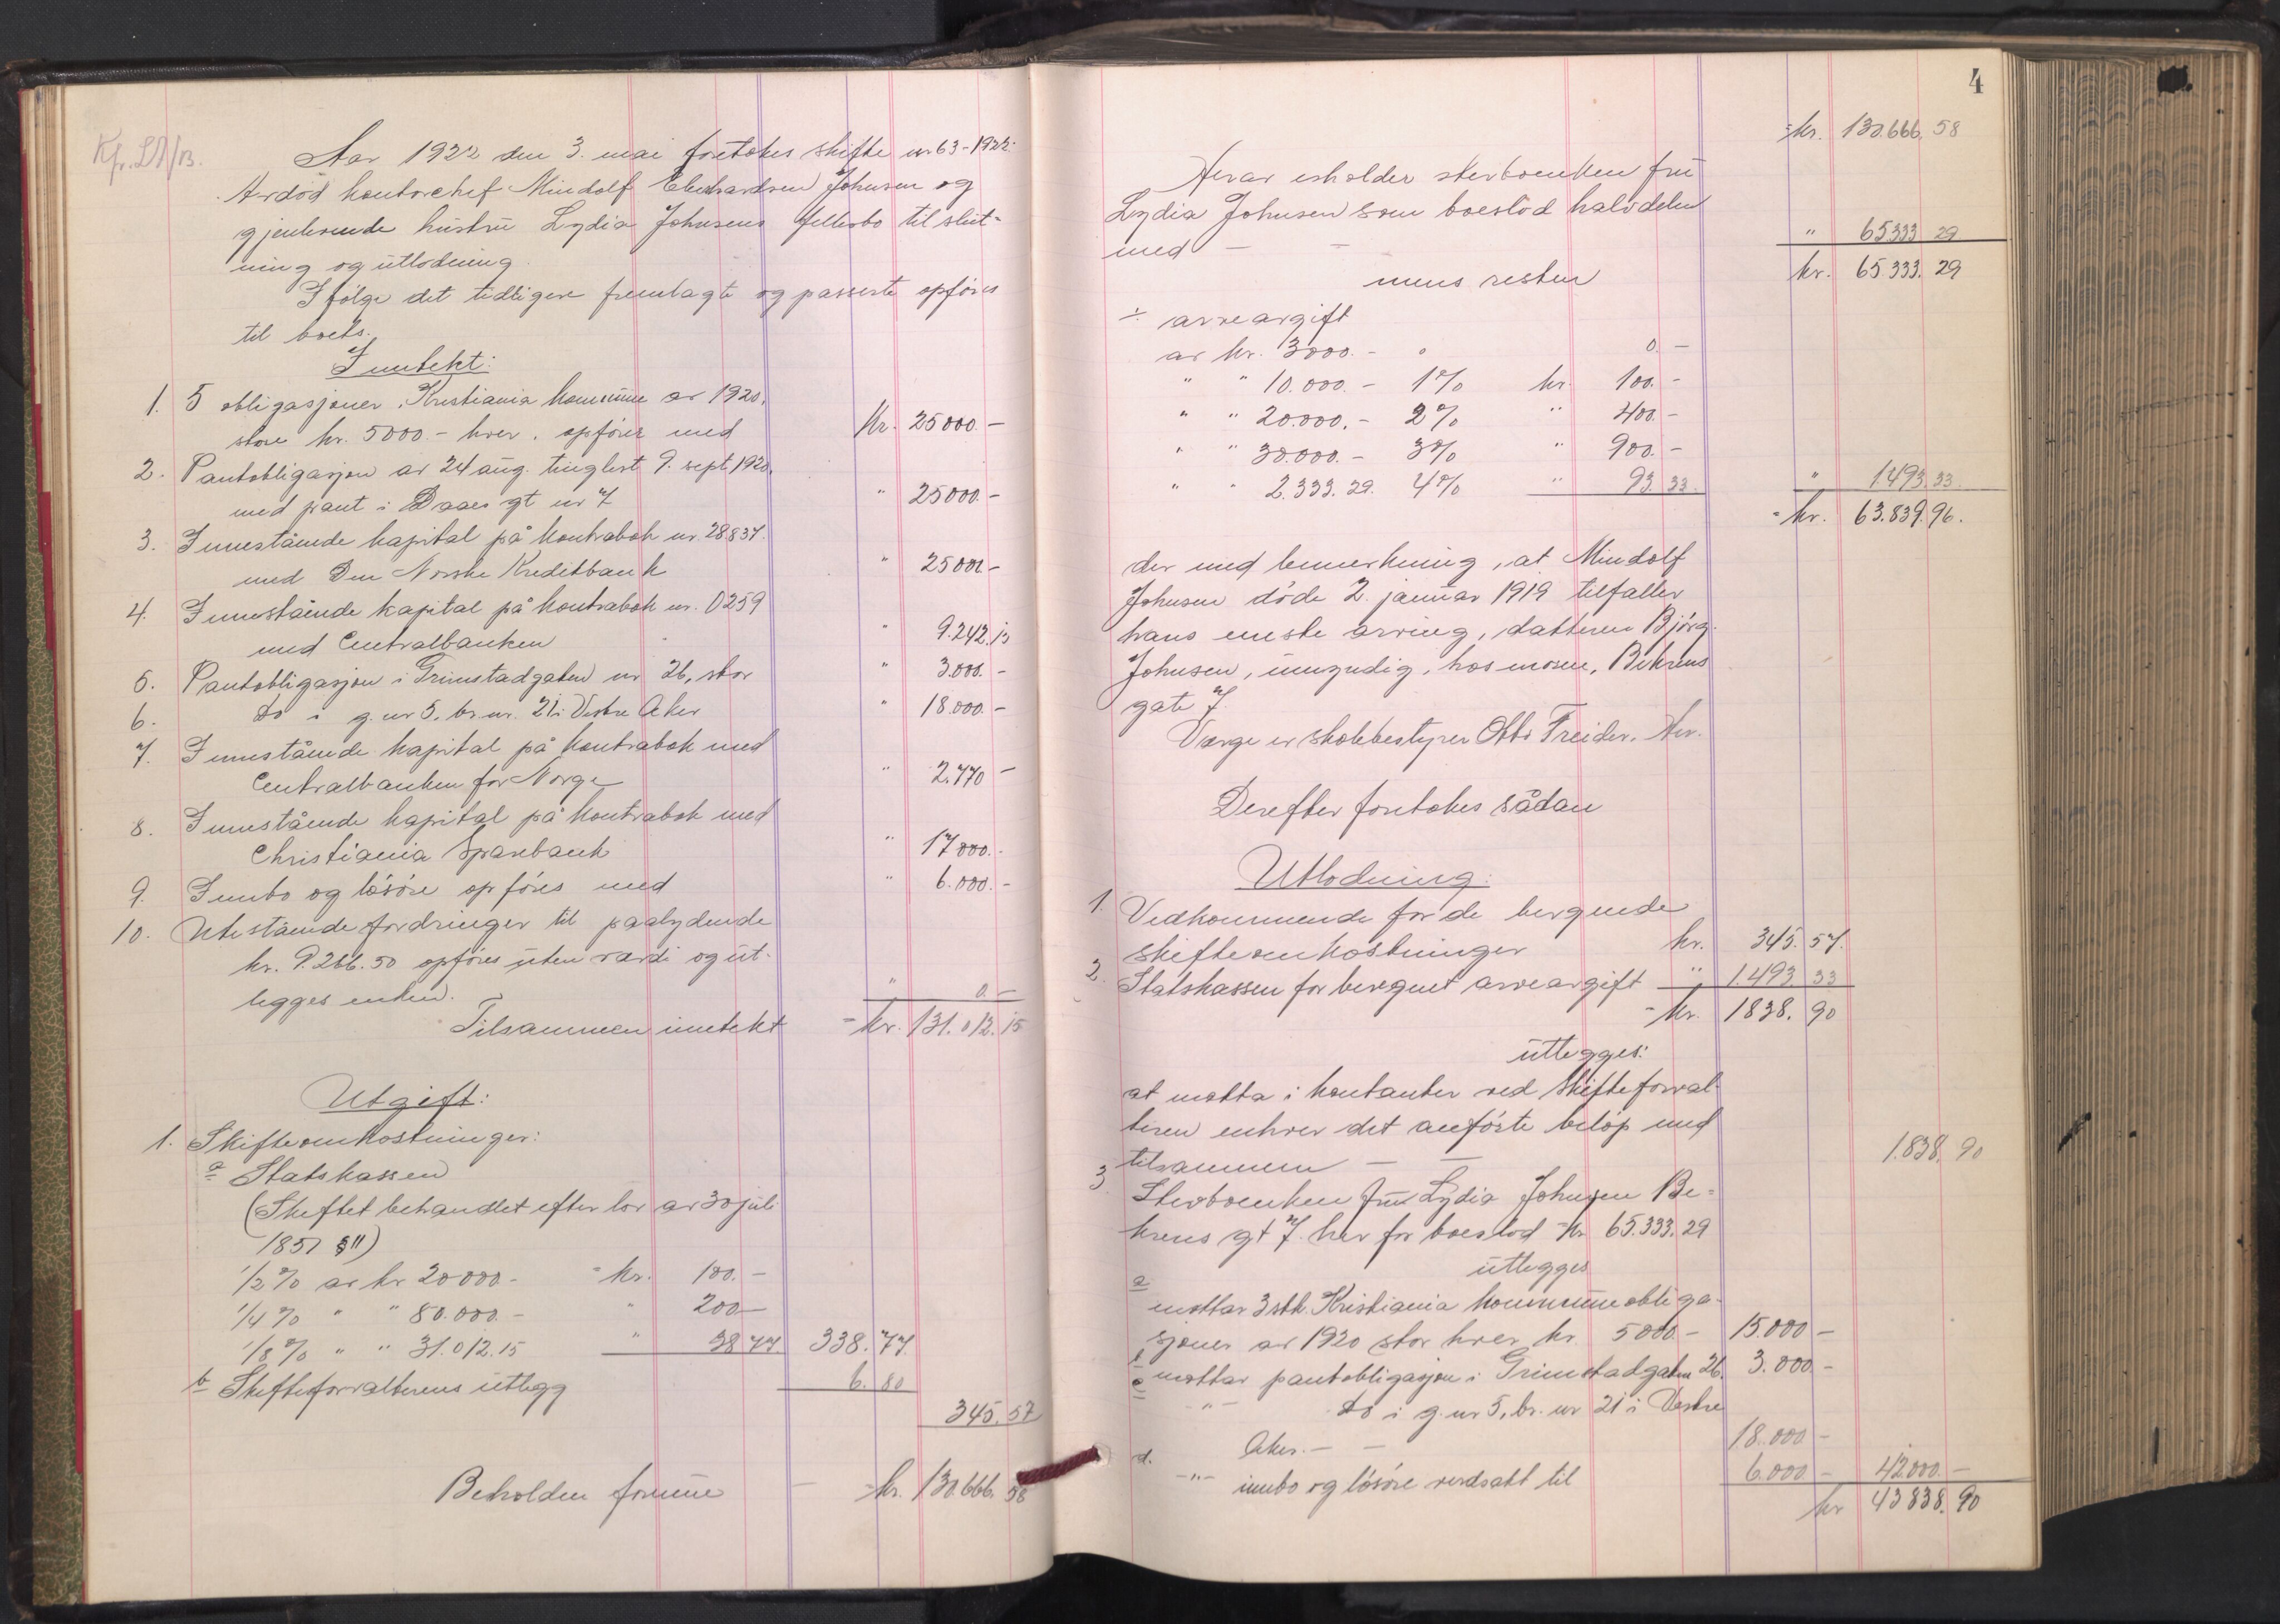 Kfr. LA/B.
Aar 1922 den 3. mai foretokes skifte nr 63-1922:
Avdöd kontorchef Mindolf Eberhardsen Johnsen og
gjenlevende hustru Lydia Johnsens fellesbo til slut-
ning og utlodning.
Ifölge det tidligere fremlagte og passerte opföres
til boets.
Inntekt:
1. 5 obligasjoner, Kristiania kommune av 1920,
store kr. 5000.- hver. opföres med Kr. 25000.-
2. Pantobligasjon av 24 aug. tinglest 9. sept 1920.
med pant i Daaes gt nr 7 " 25000.-
3. Innestående kapital på kontrabok nr. 28837.
med Den Norske Kreditbank " 25000.-
4. Innestående kapital på kontrabok nr. 0259
med Centralbanken " 9.242.15
5. Pantobligasjon i Grimstadgaten nr 26, stor " 3.000.-
6. do i g. nr 5, br. nr. 21 i Vestre Aker " 18.000.-
7. Innestående kapital på kontrabok med
Centralbanken for Norge " 2.770 -
8. Innestående kapital på kontrabok med
Christiania Sparebank " 17000.-
9. Innbo og lösöre opföres med " 6.000.-
10. Utestående fordringer til paalydende
kr. 9.266.50 opföres uten verdi og ut-
legges enken. " 0.-
Tilsammen inntekt = kr. 131.012.15
Utgift:
1. Skifteomkostninger:
a Statskassen
(Skiftet behandlet efter lov av 30 juli
1851 § 11)
1/2 % av kr 20000.- = kr. 100.-
1/4 % " " 80.000.- " 200.-
1/8 % " " 31.012.15 " 38 77 338.77
b Skifteforvalterens utlegg 6.80
345.57
Beholden formue - = kr. 130.666.58
4
= kr. 130.666.58
Herav erholder stervboenken fru
Lydia Johnsen som boeslod halvdelen
med - - " 65333 29
mens resten kr. 65333.29
÷ arveavgift
av kr. 3000.- 0 0.-
" " 10.000.- 1 % kr. 100.-
" " 20.000.- 2 % " 400.-
" " 30.000.- 3 % " 900.-
" " 2.333.29. 4 % " 93.33. " 1493.33
= kr. 63.839.96.
der med bemerkning, at Mindolf
Johnsen döde 2. januar 1919 tilfaller
hans eneste arving, datteren Björg
Johnsen, umyndig, hos moren, Behrens
gate 7.
Verge er skolebestyrer Otto Treider, her.
Derefter foretokes sådan
Utlodning:
1. Vedkommende for de beregnede
skifteomkostninger kr. 345.57.
2. Statskassen for beregnet arveavgift " 1.493 33
= kr. 1838.90
utlegges:
at motta i kontanter ved skifteforval-
teren enhver det anförte belöp med
tilsammen - - 1.838.90
3 Stervboenken fru Lydia Johnsen Be-
hrens gt 7. her for boeslod kr 65.333.29
utlegges
a mottar 3 stk. Kristiania kommuneobliga-
sjoner av 1920 stor hver kr. 5000.- 15.000 -
b mottar pantobligasjon i Grimstadgaten 26. 3.000.-
c -"- do i g. nr 5, br. nr 21 i Vestre
Aker. - - 18.000 -
d. -"- innbo og lösöre verdsatt til 6.000 - 42.000.-
kr 43838.90